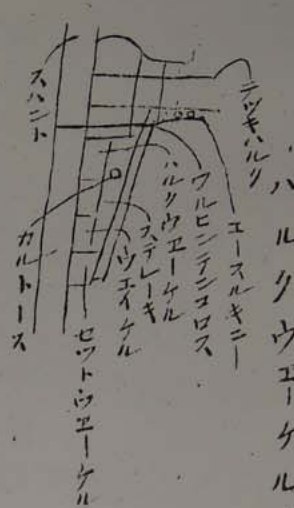 ハルクウエーケル
テツキハルク
エースルキニー
ワルビンテンコロス
ハルクウエーケル
ステレーキ
ウエイケル
セツトウエーケル
スハント
カルトース